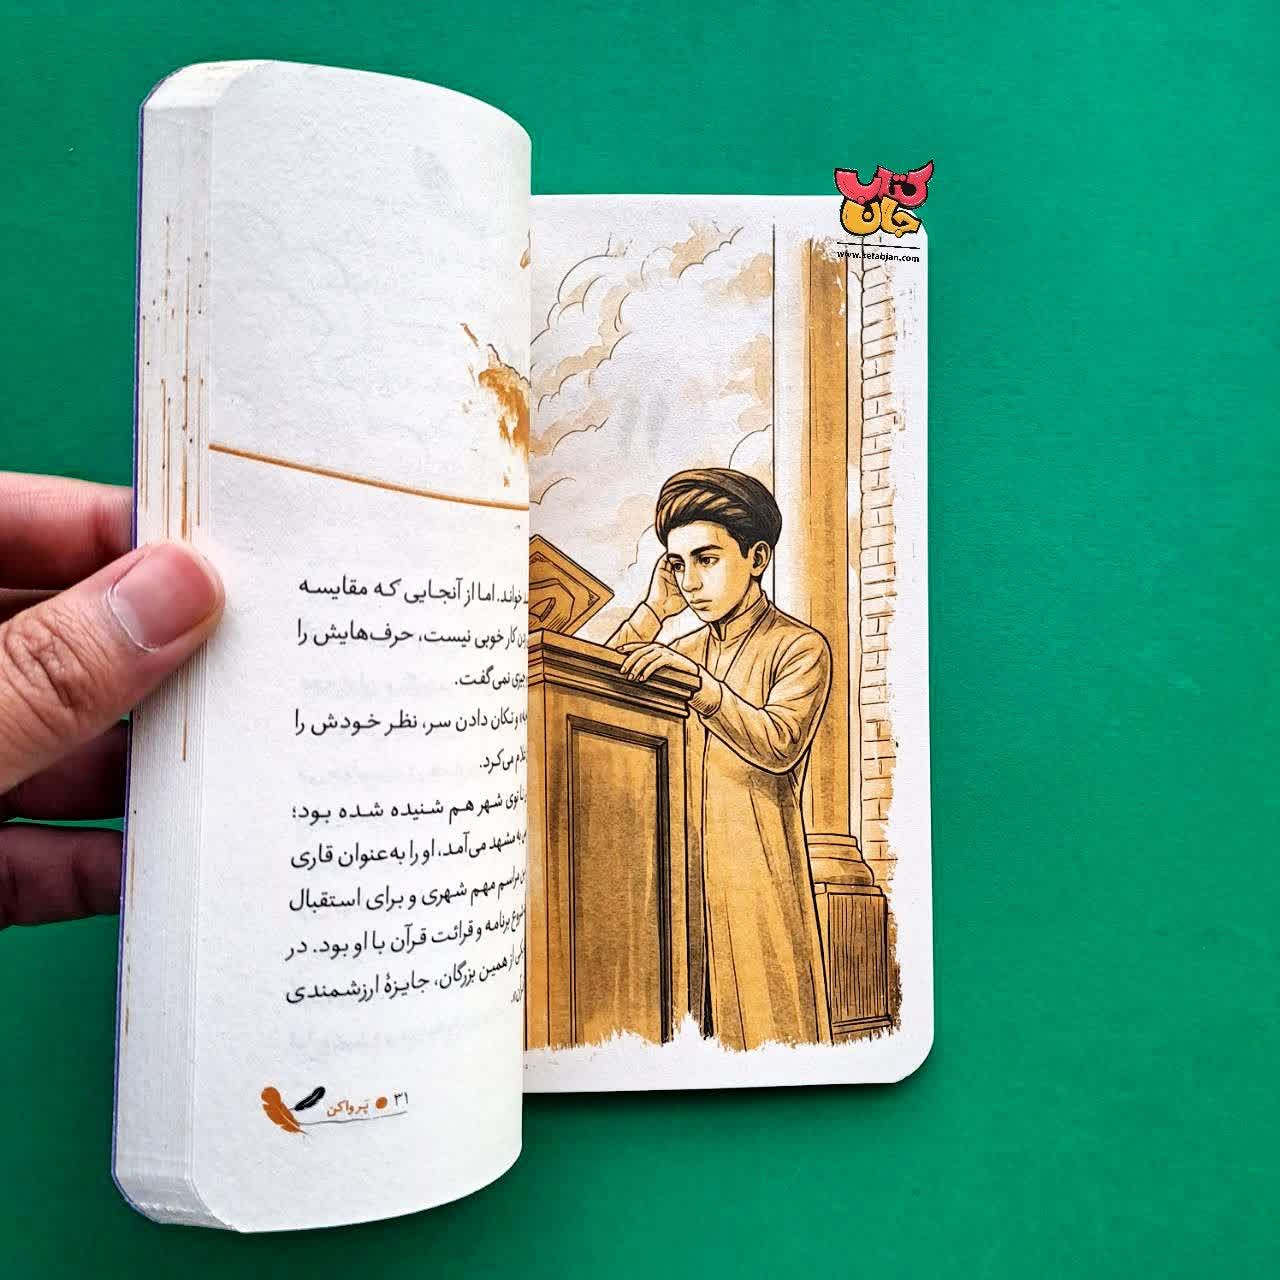 کتاب
جان
www.ketabjan.com
خواند. اما از آنجایی که مقایسه
کار خوبی نیست، حرف‌هایش را
چیزی نمی‌گفت.
و تکان دادن سر، نظر خودش را
می‌کرد.
شهر هم شنیده شده بود؛
به مشهد می‌آمد، او را به‌عنوان قاری
مراسم مهم شهری و برای استقبال
برنامه و قرائت قرآن با او بود. در
از همین بزرگان، جایزهٔ ارزشمندی
۳۱ ● پَر واکن